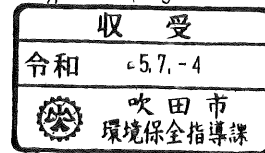 収受
令和 5.7.-4
吹田市
環境保全指導課